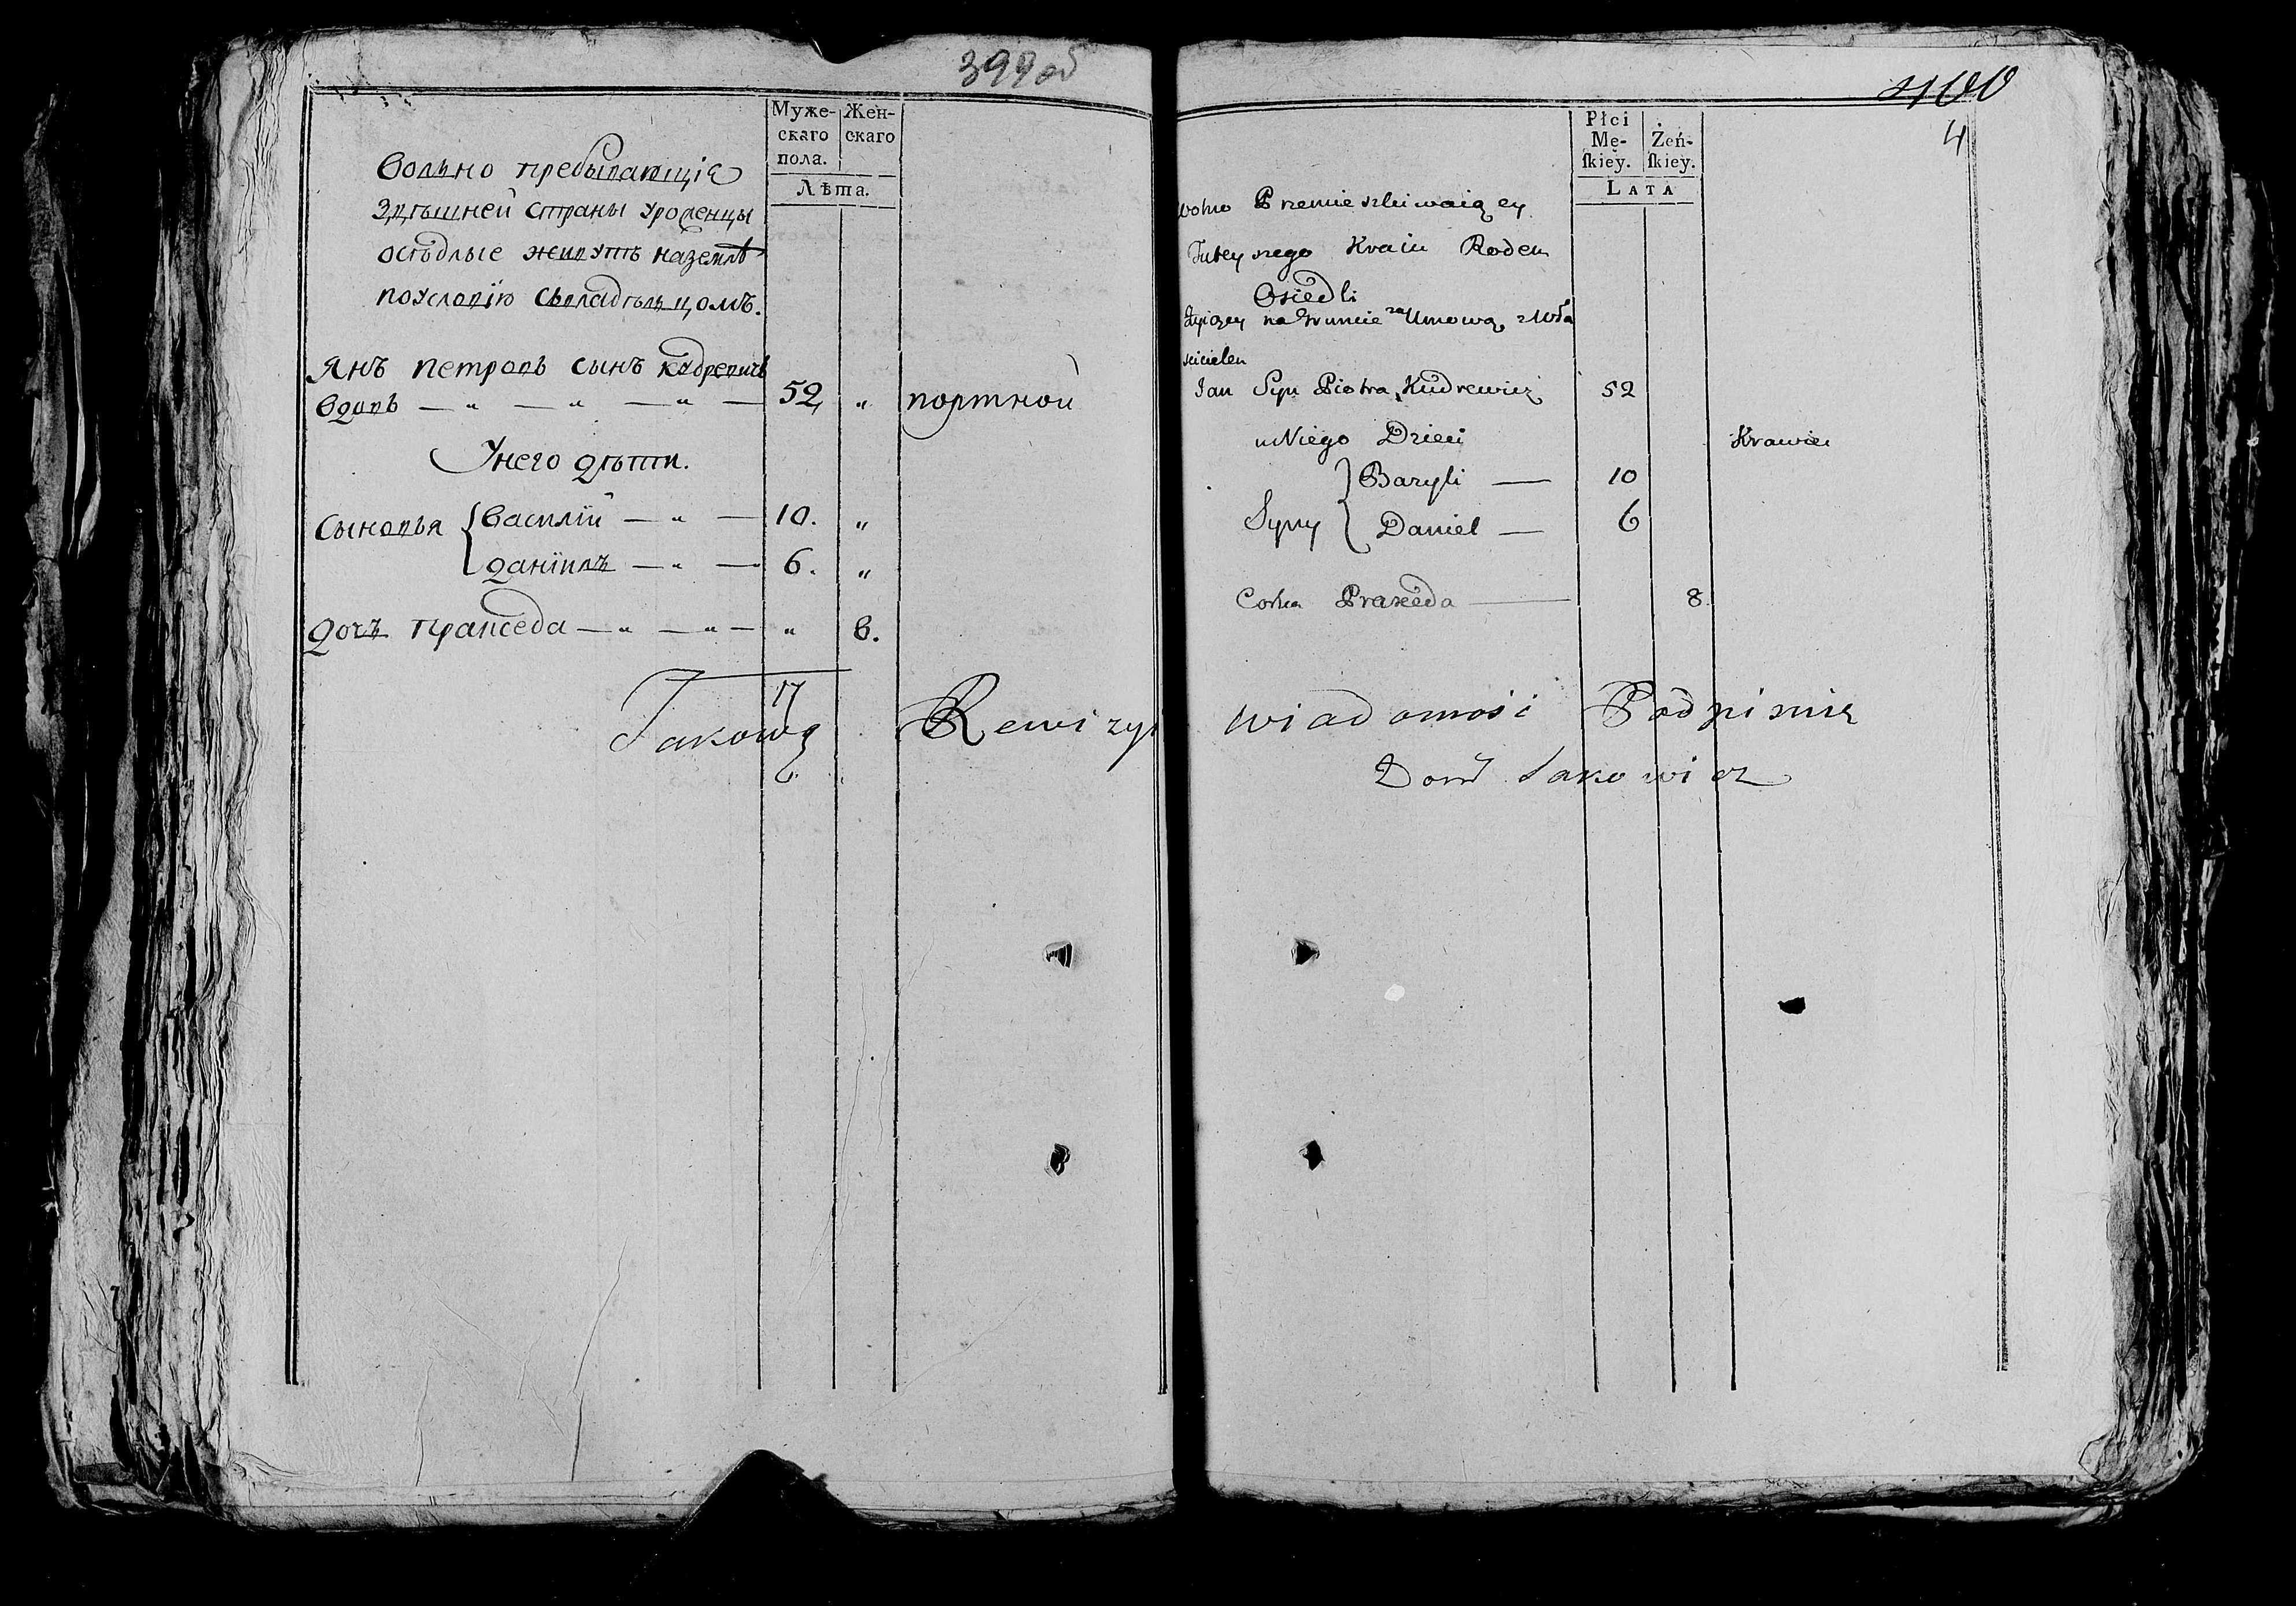 399 об
Муже-
скаго
пола.
Жен-
скаго
Лѣта.
Вольно пребывающіе
Здѣшней Страны Уроженцы
осѣдлые живутъ на землѣ
по условію Съвладѣльцомъ.
Янъ Петровъ сынъ Кудревичъ
Вдовъ — „ — „ — „ — 52 „ портной
У него дѣти.
Сыновья { Василій — „ — 10. „
Даніилъ — „ — 6. „
Дочь Пракседа — „ — „ — „ 8.
17
Takową Rewizyi
400
4
Płci
Mę-
ſkiey.
Żeń-
ſkiey.
LATA
wolno Przemieszkiwaiącey
Tuteyszego Kraiu Rodem
Osiedli
Żyiącey na Gruncie za Umową z Wła
scicielem
Jan Syn Piotra Kudrewicz 52
u Niego Dzieci Krawiec
Syny } Bazyli — 10
Daniel — 6
Corka Praxeda — 8
wiadomość Podpisuię
Jakowicz